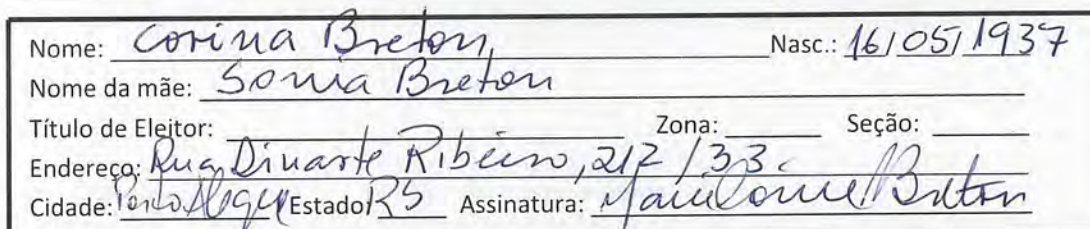 Nome: Corina Breton, Nasc.: 16/05/1937
Nome da mãe: Sonia Breton
Título de Eleitor: Zona: Seção:
Endereço: Rua Dinarte Ribeiro, 212/33.
Cidade: Porto Alegre Estado RS Assinatura: Breton